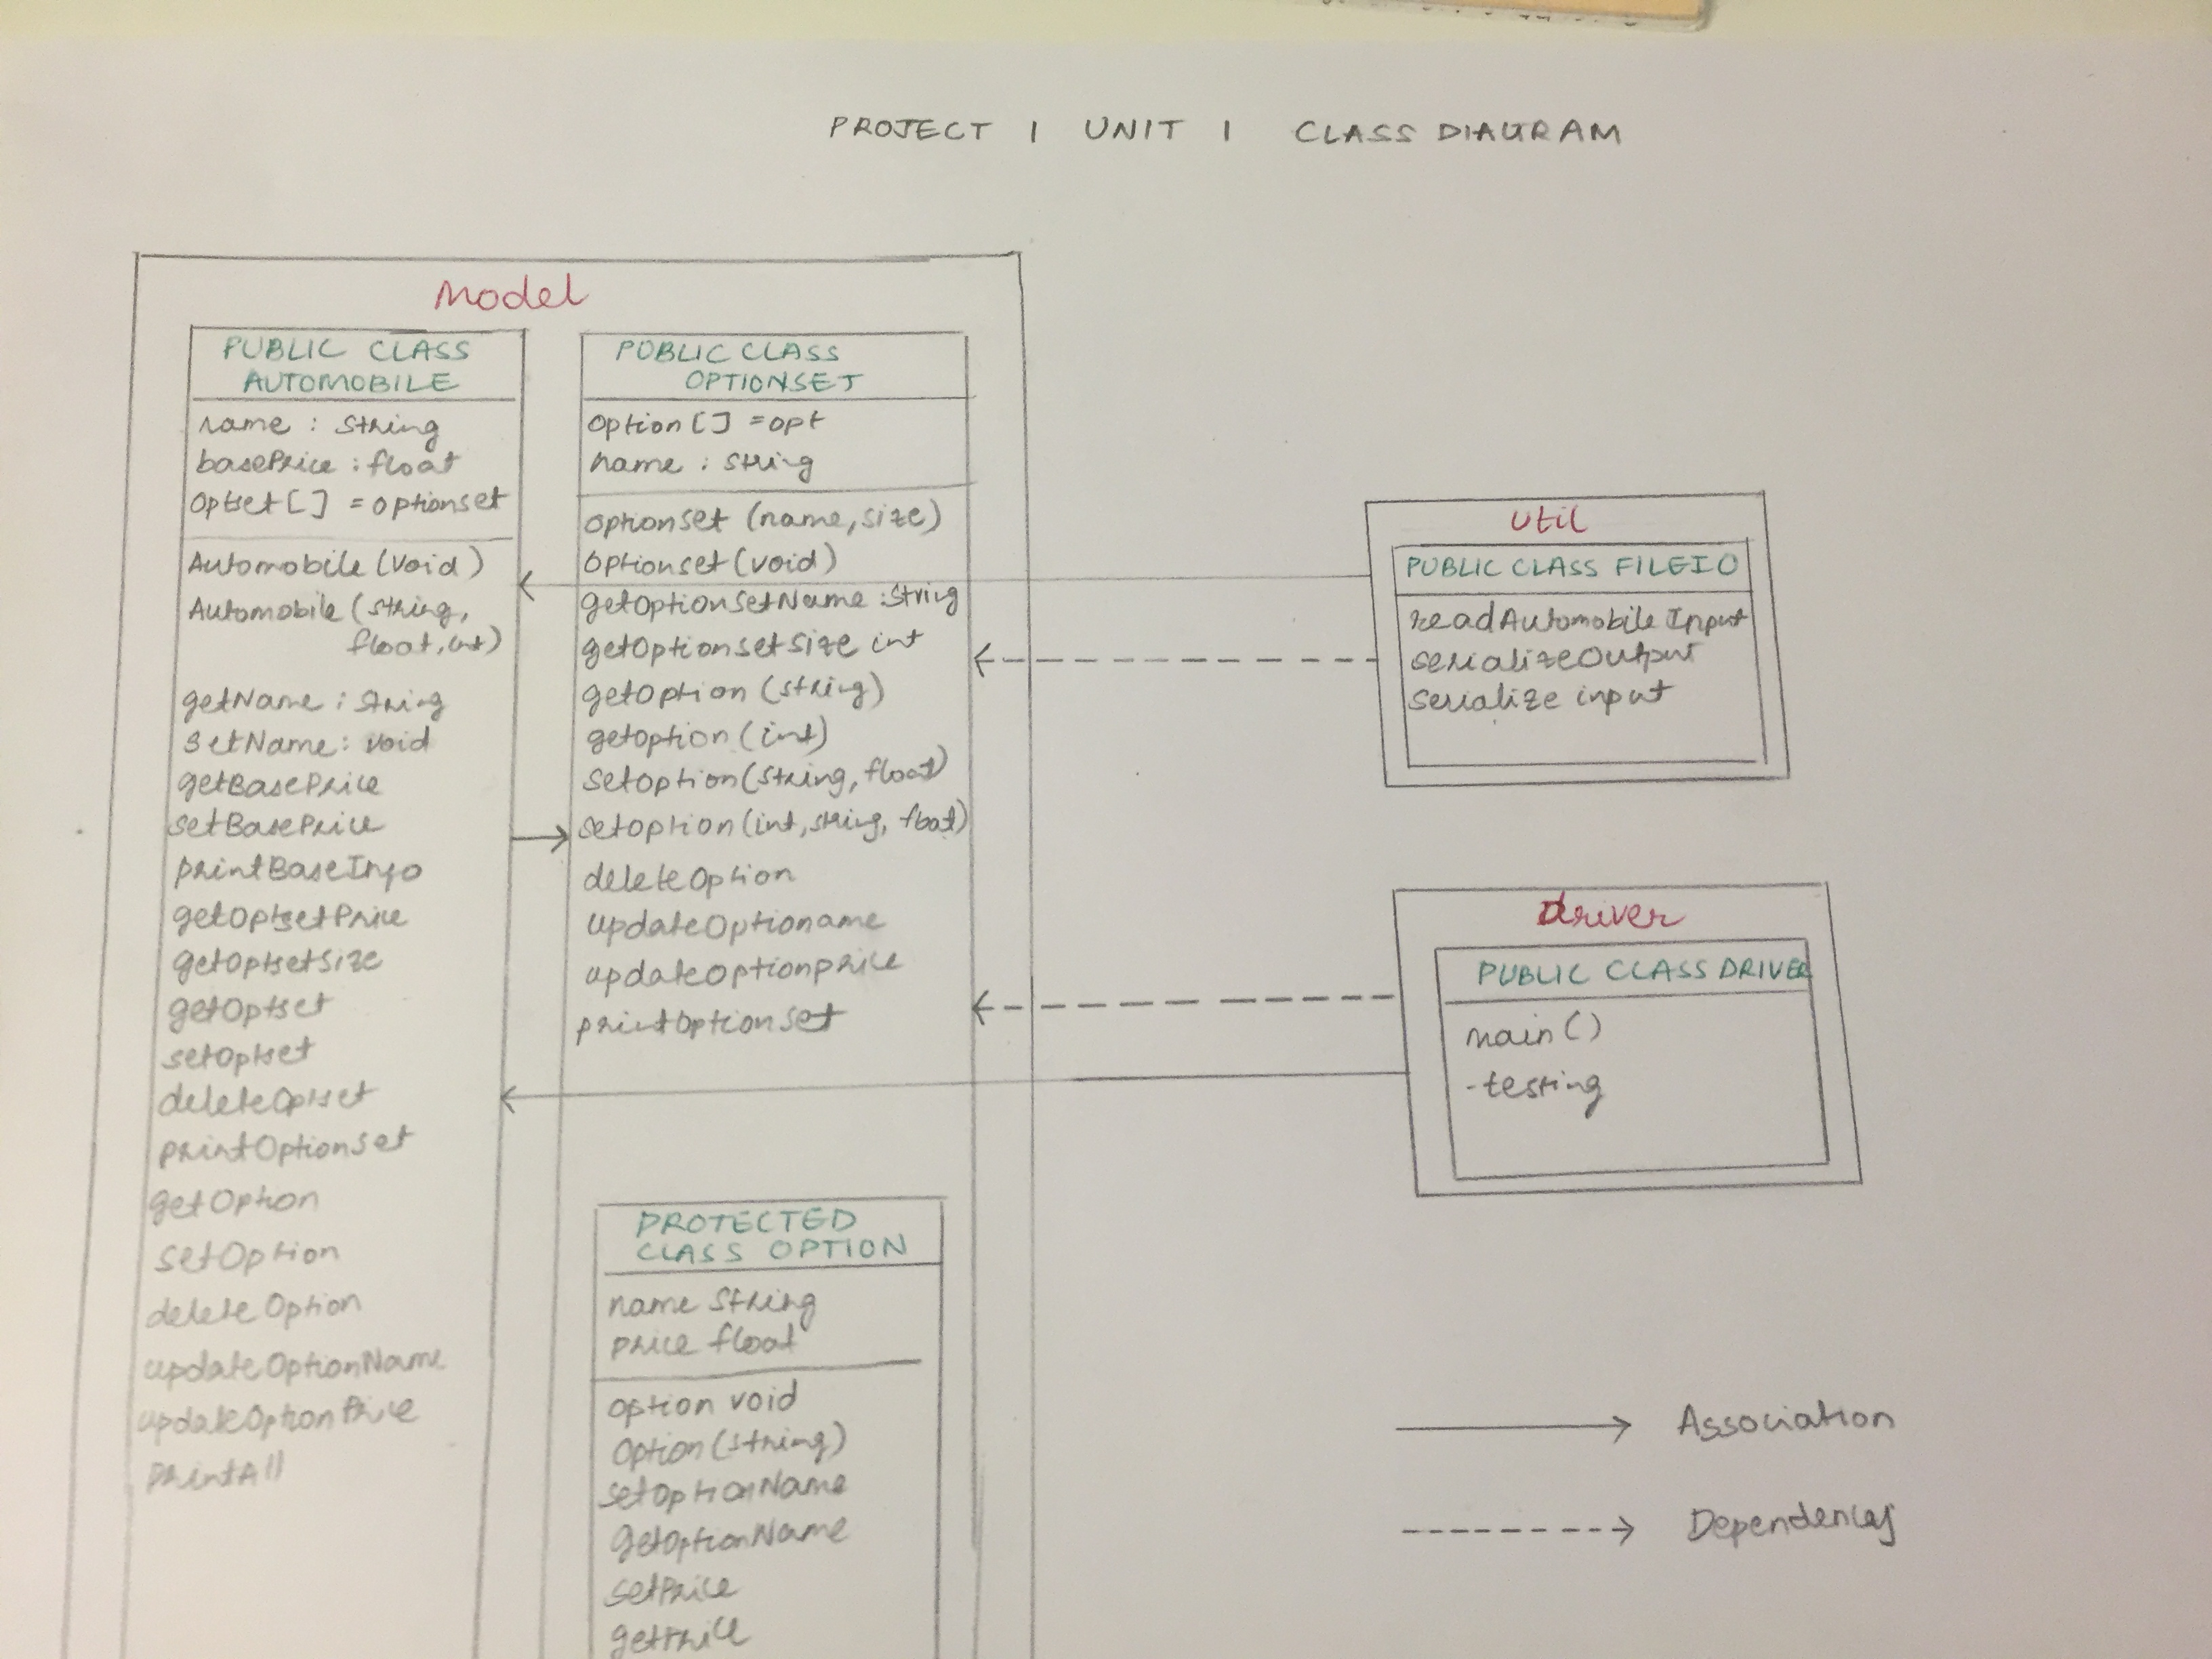 PROJECT 1 UNIT 1 CLASS DIAGRAM
Model
PUBLIC CLASS
AUTOMOBILE
name : string
basePrice : float
opset[] = optionset
Automobile(void)
Automobile(string,
float,int)
getName : string
setName : void
getBasePrice
setBasePrice
printBaseInfo
getOptsetPrice
getOptsetSize
getOptset
setOptset
deleteOptset
printOptionset
getOption
setOption
deleteOption
updateOptionName
updateOptionPrice
printAll
PUBLIC CLASS
OPTIONSET
option[] = opt
name : string
optionset (name,size)
optionset(void)
getOptionsetName : String
getOptionsetsize int
getOption (string)
getoption (int)
setOption(string, float)
setoption(int,string, float)
deleteOption
updateOptioname
updateOptionprice
printoptionset
PROTECTED
CLASS OPTION
name string
price float
option void
option(string)
setOptionName
getOptionName
setPrice
getPrice
util
PUBLIC CLASS FILEIO
readAutomobileInput
serializeOutput
serialize input
driver
PUBLIC CLASS DRIVER
main()
-testing
Association
Dependency